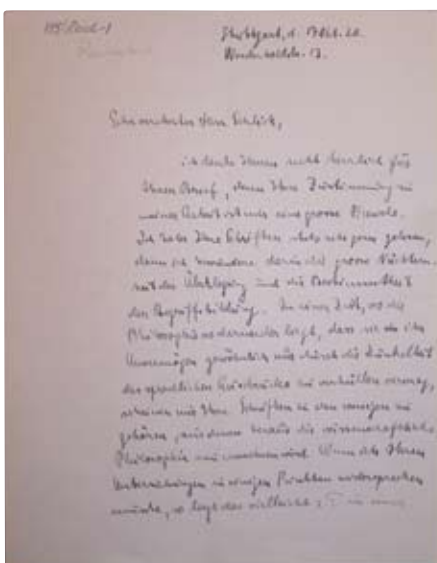 115/Reich-1
Stuttgart, d. 17.Okt.20.
13.
Sehr verehrter Herr Schlick,
ich danke Ihnen recht herzlich für
Ihren Brief, denn Ihre Zustimmung zu
meiner Arbeit ist mir eine grosse Freude.
Ich habe Ihre Schriften stets sehr gern gelesen,
denn ich bewundere darin die grosse Nüchtern-
heit der Überlegung und die Bestimmtheit
der Begriffsbildung. In einer Zeit, wo die
Philosophie so darnieder liegt, dass sie ihr
Unvermögen gewöhnlich nur durch die Dunkelheit
des sprachlichen Ausdrucks zu verhüllen vermag,
scheinen mir Ihre Schriften zu den wenigen zu
gehören, aus denen heraus die wissenschaftliche
Philosophie neu wird. Wenn ich Ihren
Untersuchungen in einigen Punkten widersprechen
musste, so liegt das vielleicht